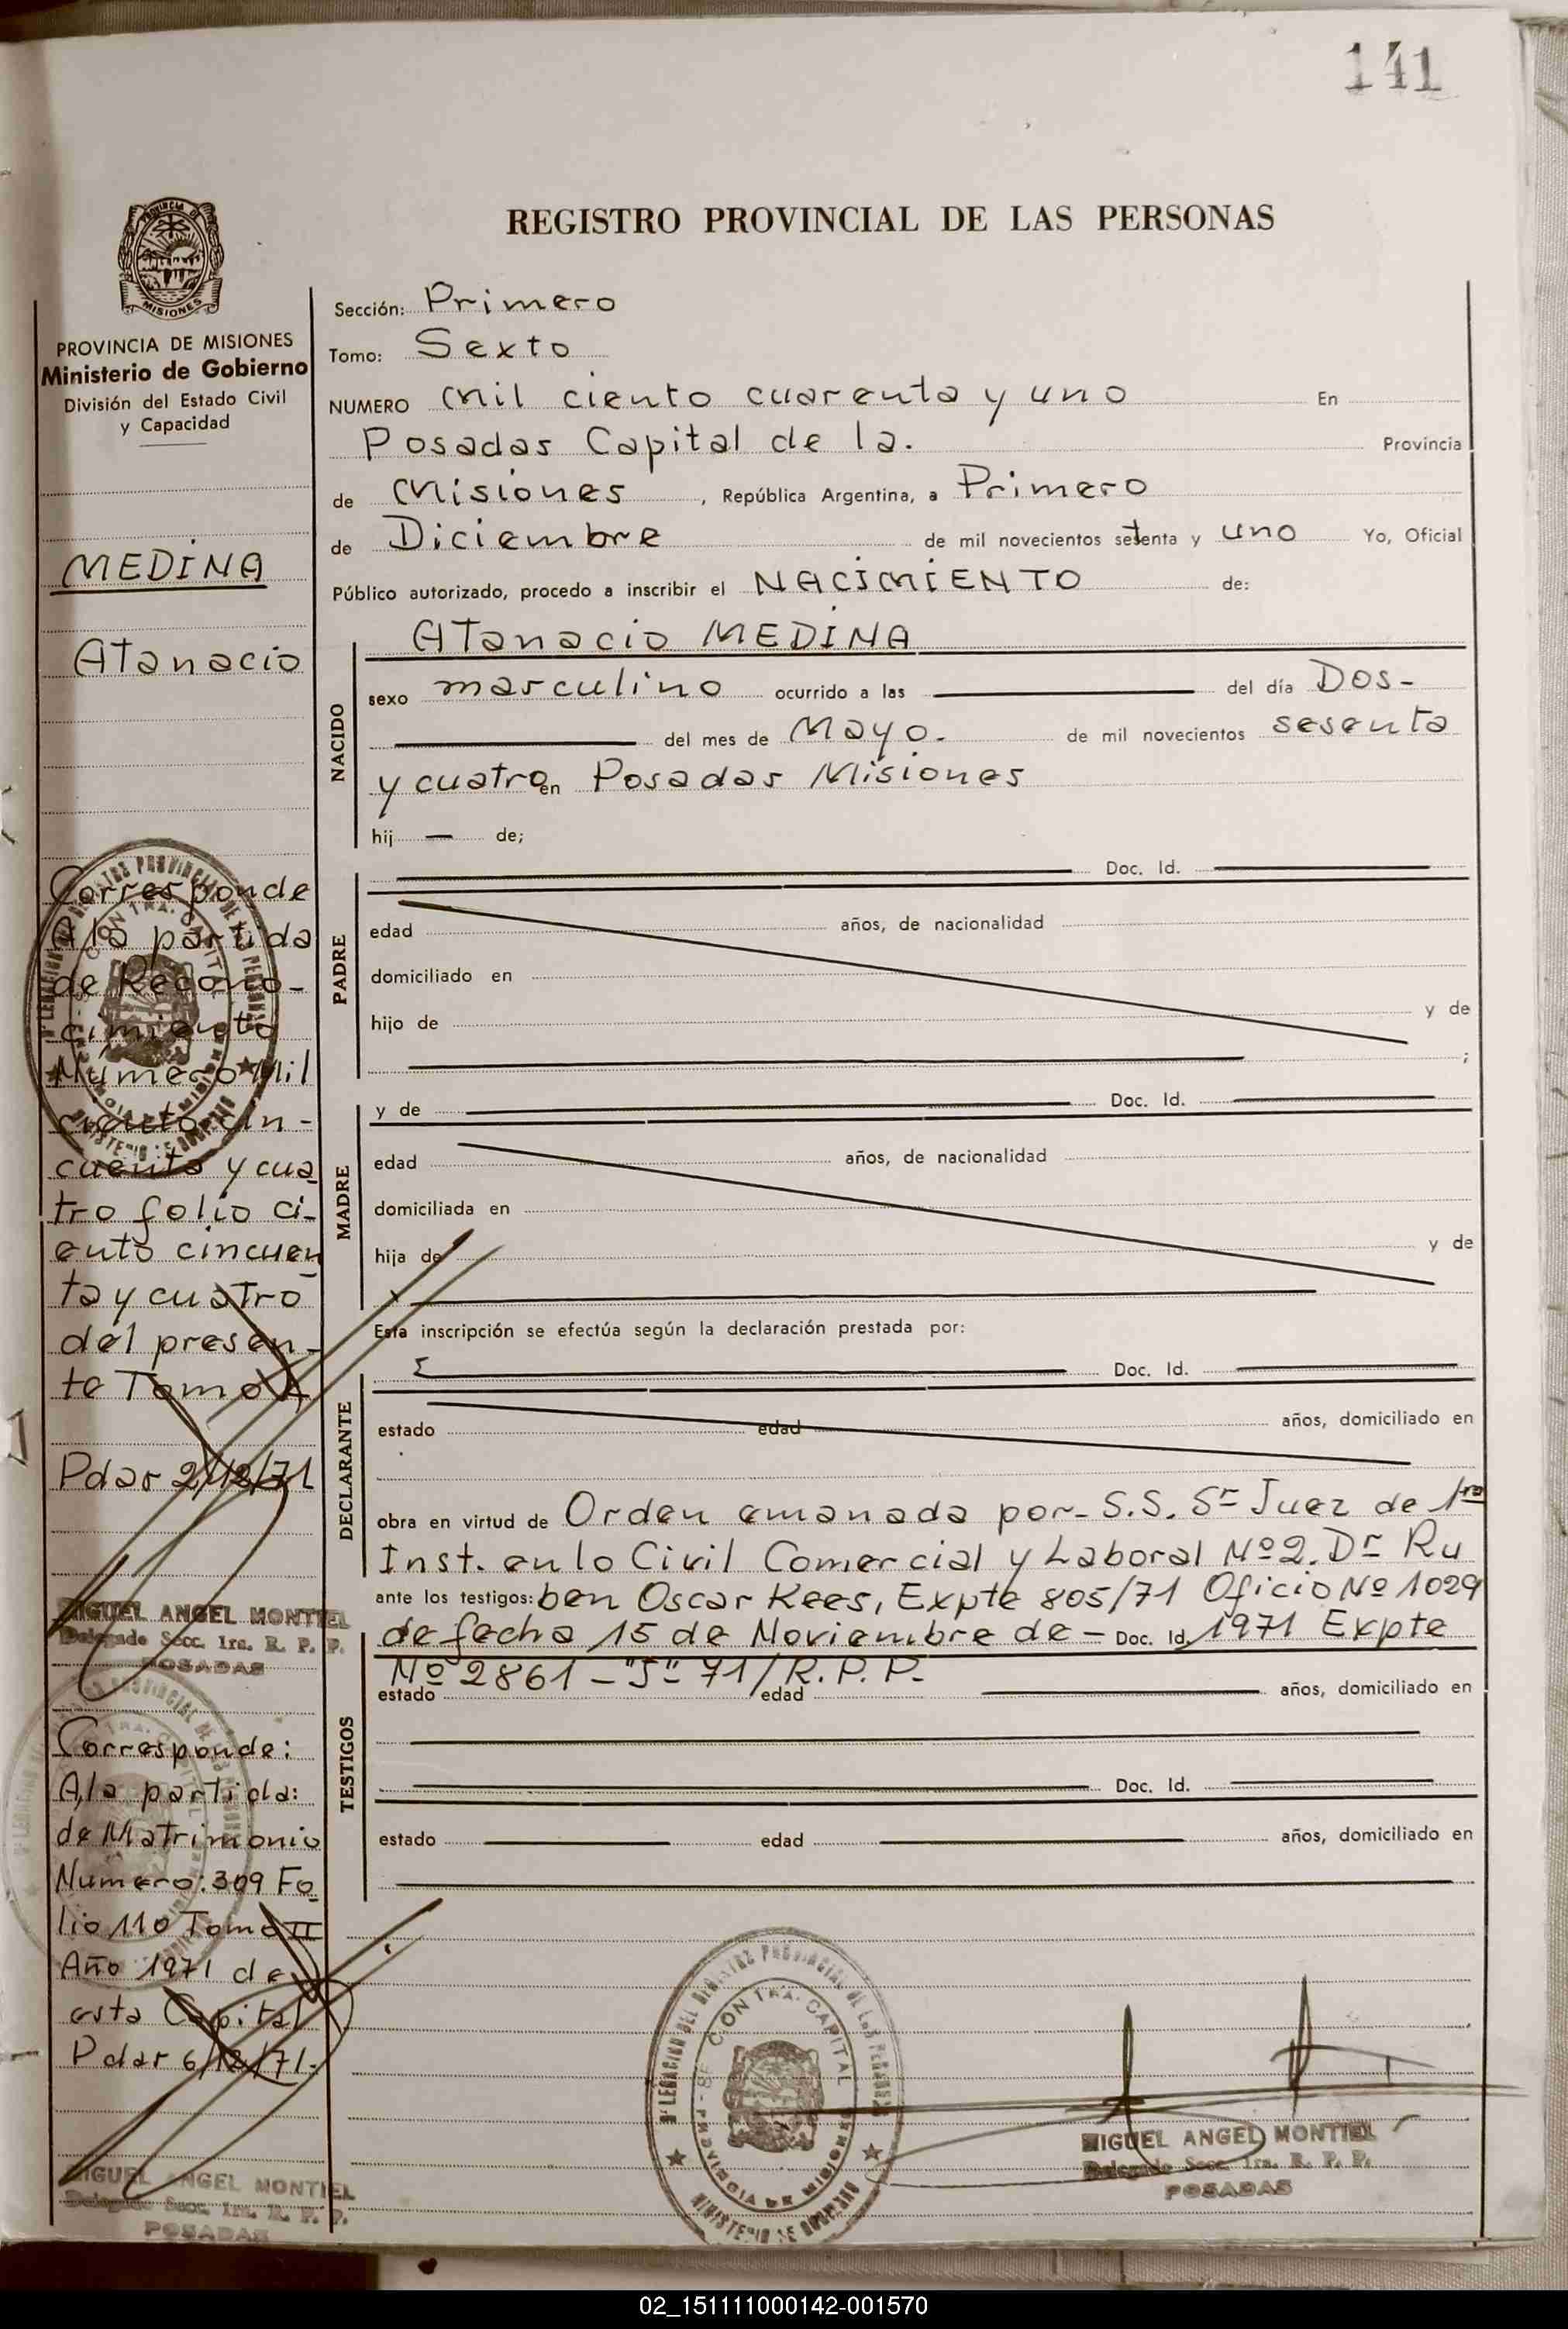 141
PROVINCIA DE
MISIONES
REGISTRO PROVINCIAL DE LAS PERSONAS
PROVINCIA DE MISIONES
Ministerio de Gobierno
División del Estado Civil
y Capacidad
MEDINA
Atanacio
Corresponde
A la partida
de Recono-
cimiento
Número Mil
ciento cin-
cuenta y cua
tro folio ci-
ento cincuen
ta y cuatro
del presen-
te Tomo
Pdas 2/12/71
MIGUEL ANGEL MONTIEL
Delegado Secc. 1ra. R. P. P.
POSADAS
Corresponde:
A la partida:
de Matrimonio
Numero: 309 Fo
lio 110 Tomo II
Año 1971 de
esta Capital
Pdas 6/12/71.
MIGUEL ANGEL MONTIEL
Delegado Secc. 1ra. R. P. P.
POSADAS
Sección: Primero
Tomo: Sexto
NUMERO Mil ciento cuarenta y uno En
Posadas Capital de la. Provincia
de Misiones , República Argentina, a Primero
de Diciembre de mil novecientos setenta y uno Yo, Oficial
Público autorizado, procedo a inscribir el NACIMIENTO de:
NACIDO
Atanacio MEDINA
sexo masculino ocurrido a las del día Dos-
del mes de Mayo. de mil novecientos sesenta
y cuatro en Posadas Misiones
hij — de;
PADRE
Doc. Id.
edad años, de nacionalidad
domiciliado en
hijo de y de
;
MADRE
y de Doc. Id.
edad años, de nacionalidad
domiciliada en
hija de y de
Esta inscripción se efectúa según la declaración prestada por:
DECLARANTE
Doc. Id.
estado edad años, domiciliado en
obra en virtud de Orden emanada por- S.S. Sr Juez de 1ra
Inst. en lo Civil Comercial y Laboral Nº 2. Dr Ru
ante los testigos: ben Oscar Kees, Expte 805/71 Oficio Nº 1029
de fecha 15 de Noviembre de - Doc. Id. 1971 Expte
Nº 2861 - "J" 71/R.P.P.
TESTIGOS
estado edad años, domiciliado en
Doc. Id.
estado edad años, domiciliado en
CONTRA. CAPITAL
PROVINCIA DE MISIONES
MIGUEL ANGEL MONTIEL
Delegado Secc. 1ra. R. P. P.
POSADAS
02_151111000142-001570